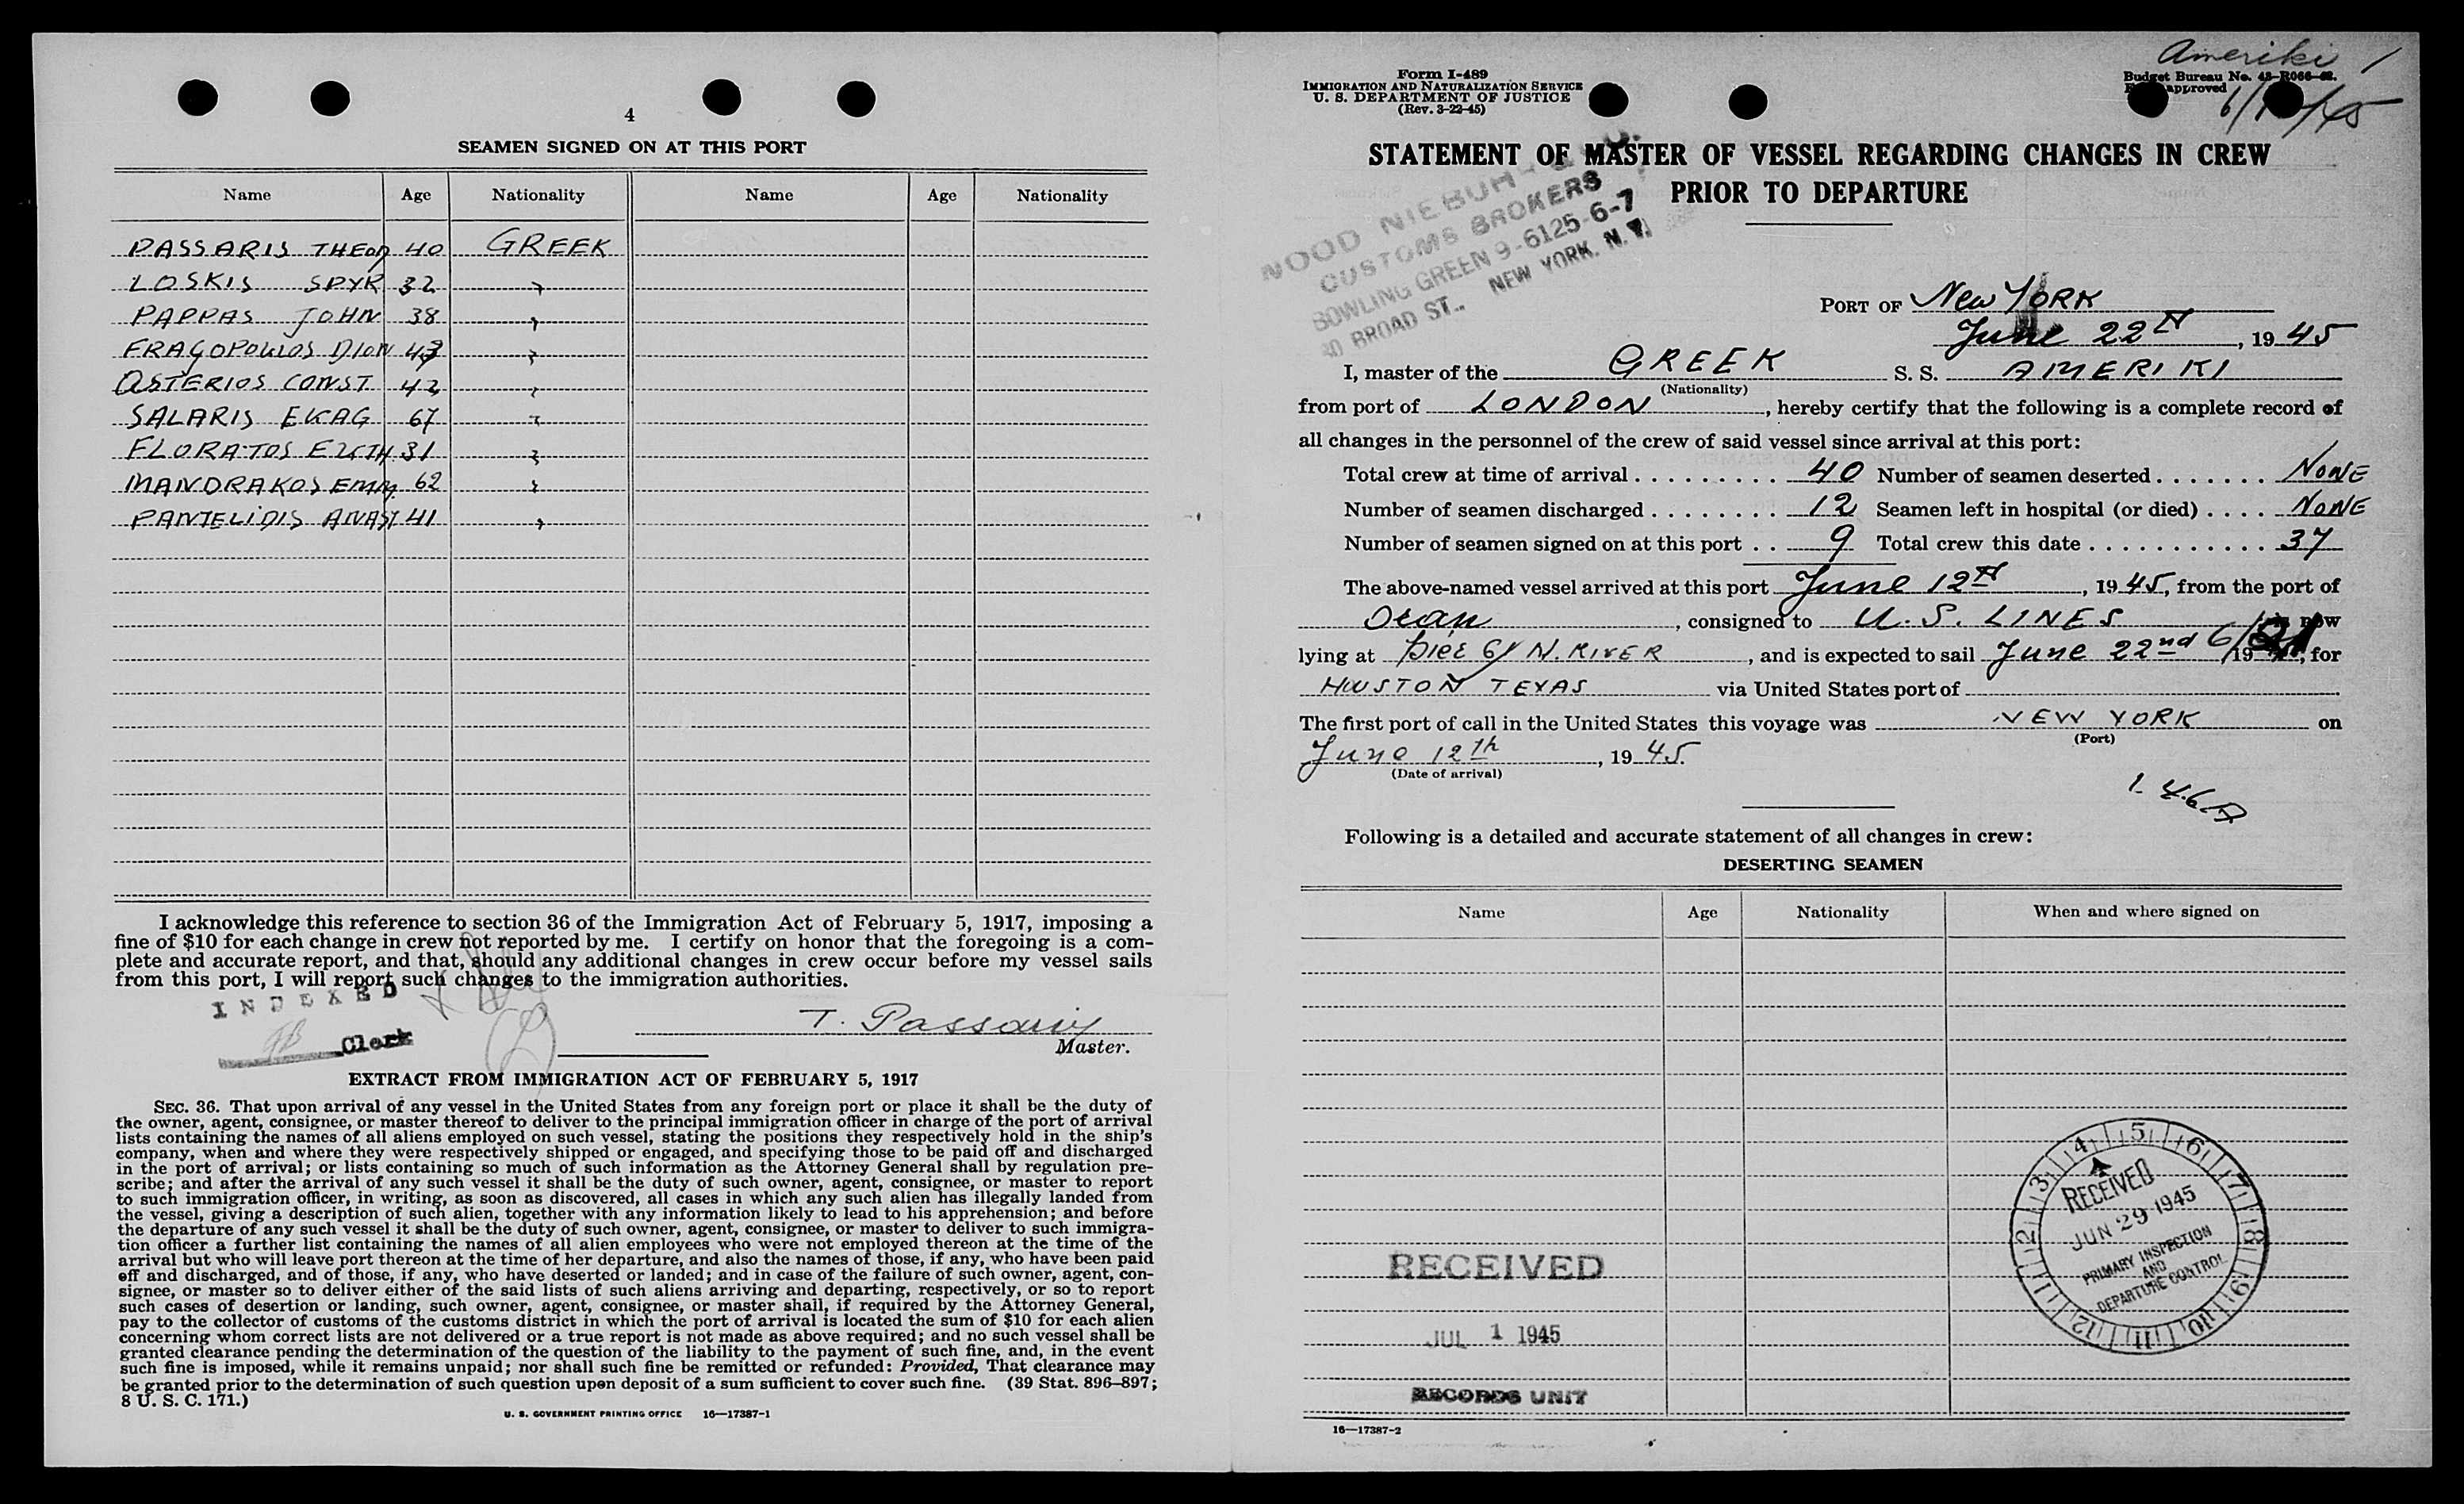 4
SEAMEN SIGNED ON AT THIS PORT
Name Age Nationality Name Age Nationality
PASSARIS THEOD 40 GREEK
LOSKIS SPYR 32 "
PAPPAS JOHN 38 "
FRAGOPOULOS DION 43 "
ASTERIOS CONST 42 "
SALARIS EKAG 67 "
FLORATOS EUTH. 31 "
MANDRAKOS EMM. 62 "
PANTELIDIS ANAST 41 "
I acknowledge this reference to section 36 of the Immigration Act of February 5, 1917, imposing a
fine of $10 for each change in crew not reported by me. I certify on honor that the foregoing is a com-
plete and accurate report, and that, should any additional changes in crew occur before my vessel sails
from this port, I will report such changes to the immigration authorities.
INDEXED
Clerk
T. Passaris
Master.
EXTRACT FROM IMMIGRATION ACT OF FEBRUARY 5, 1917
SEC. 36. That upon arrival of any vessel in the United States from any foreign port or place it shall be the duty of
the owner, agent, consignee, or master thereof to deliver to the principal immigration officer in charge of the port of arrival
lists containing the names of all aliens employed on such vessel, stating the positions they respectively hold in the ship's
company, when and where they were respectively shipped or engaged, and specifying those to be paid off and discharged
in the port of arrival; or lists containing so much of such information as the Attorney General shall by regulation pre-
scribe; and after the arrival of any such vessel it shall be the duty of such owner, agent, consignee, or master to report
to such immigration officer, in writing, as soon as discovered, all cases in which any such alien has illegally landed from
the vessel, giving a description of such alien, together with any information likely to lead to his apprehension; and before
the departure of any such vessel it shall be the duty of such owner, agent, consignee, or master to deliver to such immigra-
tion officer a further list containing the names of all alien employees who were not employed thereon at the time of the
arrival but who will leave port thereon at the time of her departure, and also the names of those, if any, who have been paid
off and discharged, and of those, if any, who have deserted or landed; and in case of the failure of such owner, agent, con-
signee, or master so to deliver either of the said lists of such aliens arriving and departing, respectively, or so to report
such cases of desertion or landing, such owner, agent, consignee, or master shall, if required by the Attorney General,
pay to the collector of customs of the customs district in which the port of arrival is located the sum of $10 for each alien
concerning whom correct lists are not delivered or a true report is not made as above required; and no such vessel shall be
granted clearance pending the determination of the question of the liability to the payment of such fine, and, in the event
such fine is imposed, while it remains unpaid; nor shall such fine be remitted or refunded: Provided, That clearance may
be granted prior to the determination of such question upon deposit of a sum sufficient to cover such fine. (39 Stat. 896–897;
8 U. S. C. 171.)
U. S. GOVERNMENT PRINTING OFFICE 16—17387-1
Ameriki
Form I-489
IMMIGRATION AND NATURALIZATION SERVICE
U. S. DEPARTMENT OF JUSTICE
(Rev. 3-22-45)
Budget Bureau No. 43-R066-42.
approved
STATEMENT OF MASTER OF VESSEL REGARDING CHANGES IN CREW
PRIOR TO DEPARTURE
CUSTOMS BROKERS
BOWLING GREEN 9-6125-6-7
BROAD ST., NEW YORK, N.Y.
PORT OF New YORK
June 22, 1945
I, master of the GREEK S. S. AMERIKI
(Nationality)
from port of LONDON, hereby certify that the following is a complete record of
all changes in the personnel of the crew of said vessel since arrival at this port:
Total crew at time of arrival 40 Number of seamen deserted NONE
Number of seamen discharged 12 Seamen left in hospital (or died) NONE
Number of seamen signed on at this port 9 Total crew this date 37
The above-named vessel arrived at this port June 12th, 1945, from the port of
Oran, consigned to U.S. LINES now
lying at pier 61 N. RIVER, and is expected to sail June 22nd 19, for
HUSTON TEXAS via United States port of
The first port of call in the United States this voyage was NEW YORK on
(Port)
June 12th, 1945.
(Date of arrival)
Following is a detailed and accurate statement of all changes in crew:
DESERTING SEAMEN
Name Age Nationality When and where signed on
RECEIVED
JUN 29 1945
PRIMARY INSPECTION
AND
DEPARTURE CONTROL
1 2 3 4 5 6 7 8 9 10 11 12
RECEIVED
JUL 1 1945
RECORDS UNIT
16—17387-2